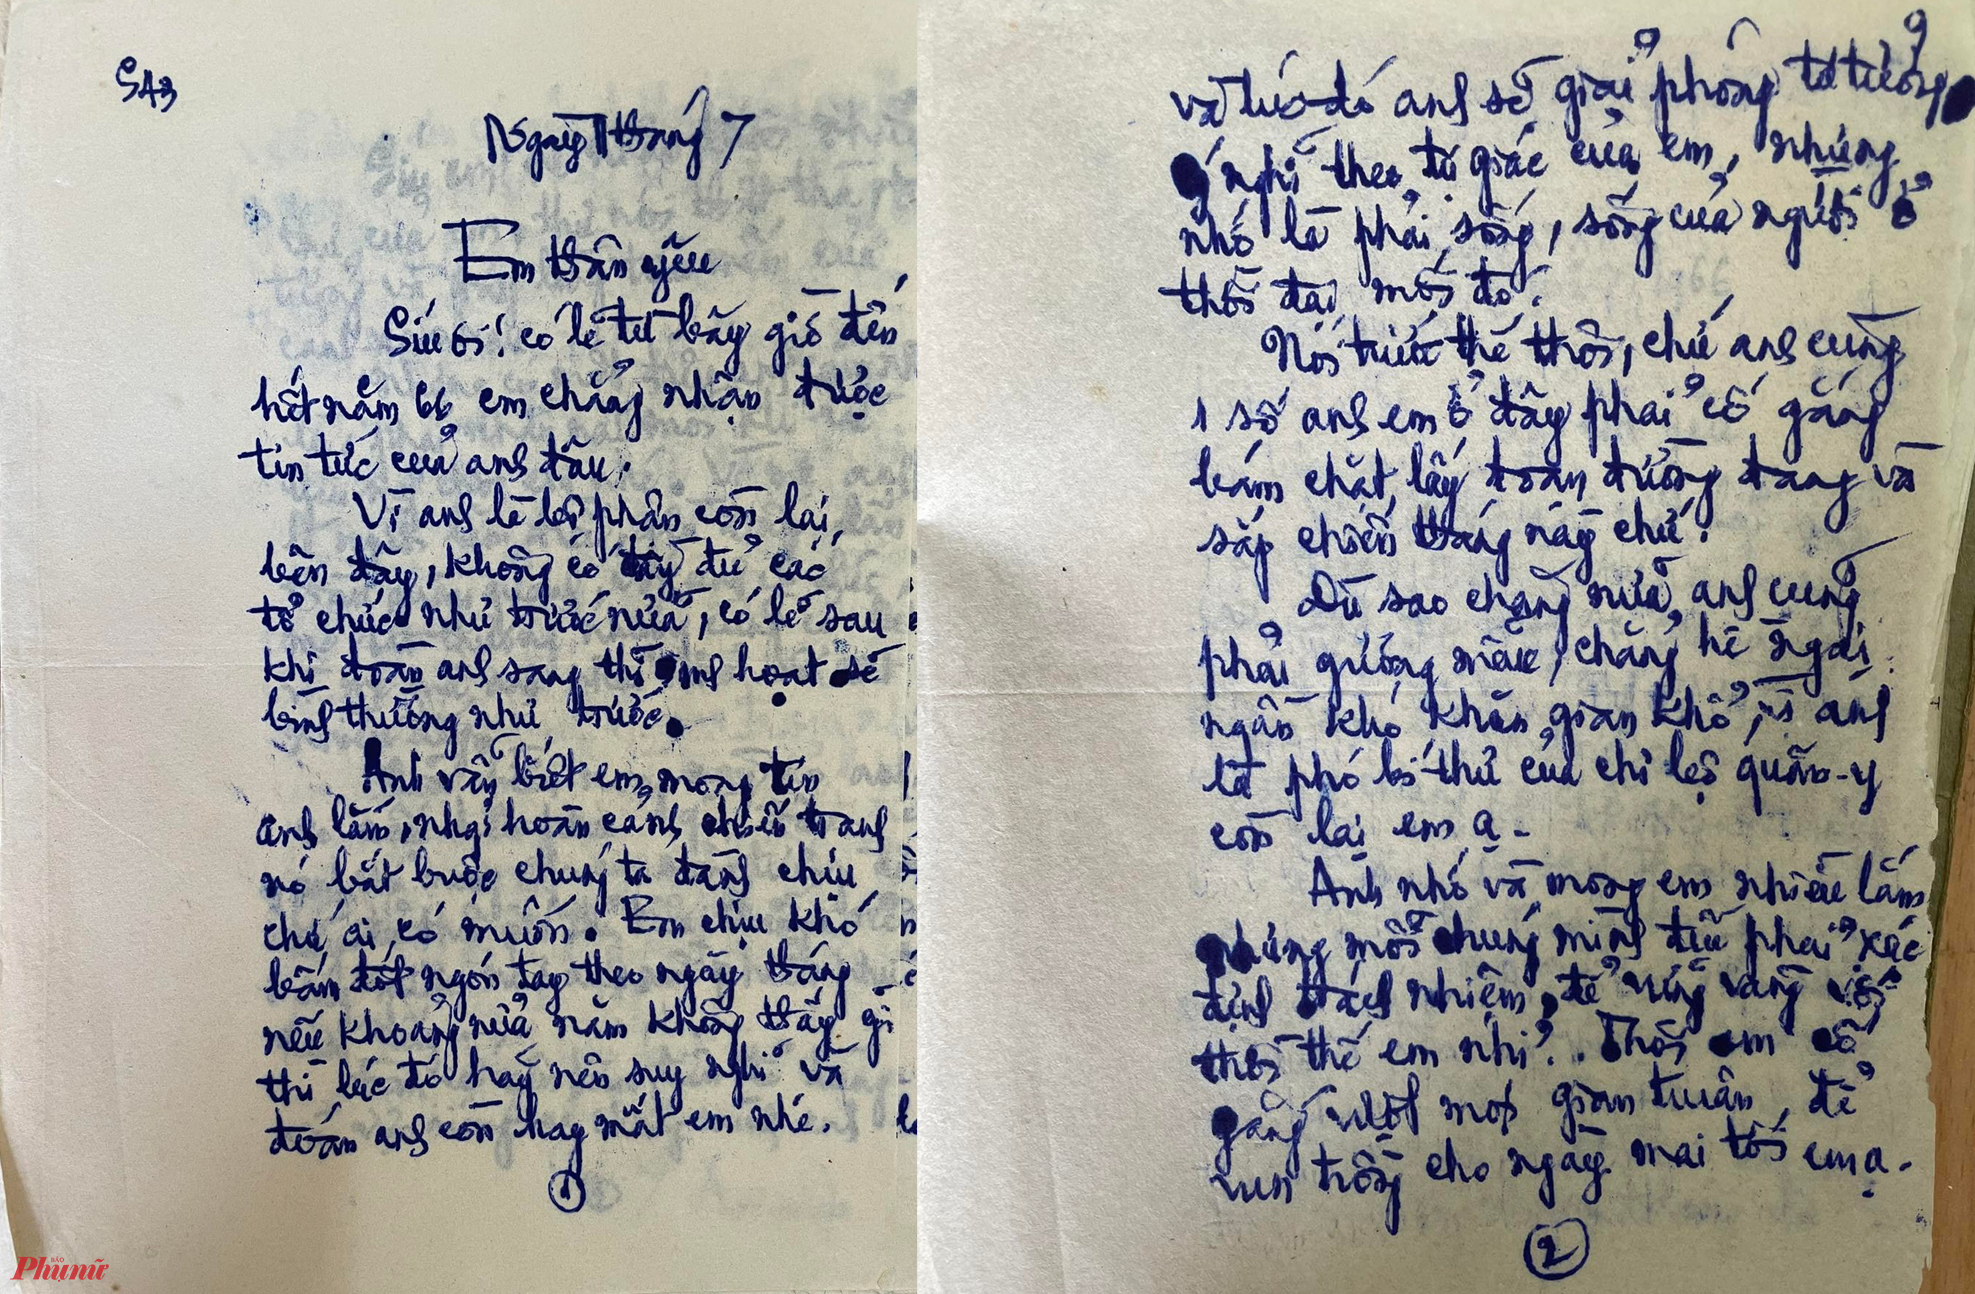 SA3
Ngày 1 tháng 7
Em thân yêu
Sửu ơi! có lẽ từ bây giờ đến
hết năm 66 em chẳng nhận được
tin tức của anh đâu.
Vì anh là bộ phận còn lại
bên đây, không có đầy đủ các
tổ chức như trước nữa, có lẽ sau
khi đoàn anh sang thì sinh hoạt sẽ
bình thường như trước.
Anh vẫn biết em mong tin
anh lắm, nhưng hoàn cảnh chiến tranh
nó bắt buộc chúng ta đành chịu
chứ ai có muốn. Em chịu khó
bấm đốt ngón tay theo ngày tháng
nếu khoảng nửa năm không thấy gì
thì lúc đó hãy nên suy nghĩ và
đoán anh còn hay mất em nhé.
1
và lúc đó anh sẽ giải phóng tư tưởng
ý nghĩ theo tự giác của em, nhưng
nhớ là phải sống, sống của người ở
thời đại mới đó.
Nói trước thế thôi, chứ anh cũng
1 số anh em ở đây phải cố gắng
bám chặt lấy đoạn đường đang và
sắp chiến thắng này chứ!
Dù sao chăng nữa anh cũng
phải gương mẫu, chẳng hề ngại
ngần khó khăn gian khổ, vì anh
là phó bí thư của chi bộ quân-y
còn lại em ạ.
Anh nhớ và mong em nhiều lắm
nhưng mỗi chúng mình đều phải xác
định trách nhiệm, để vững vàng với
thời thế em nhỉ? Thôi em cố
gắng vượt mọi gian truân để
vun trồng cho ngày mai tốt em ạ.
2
BÁO
Phụ nữ